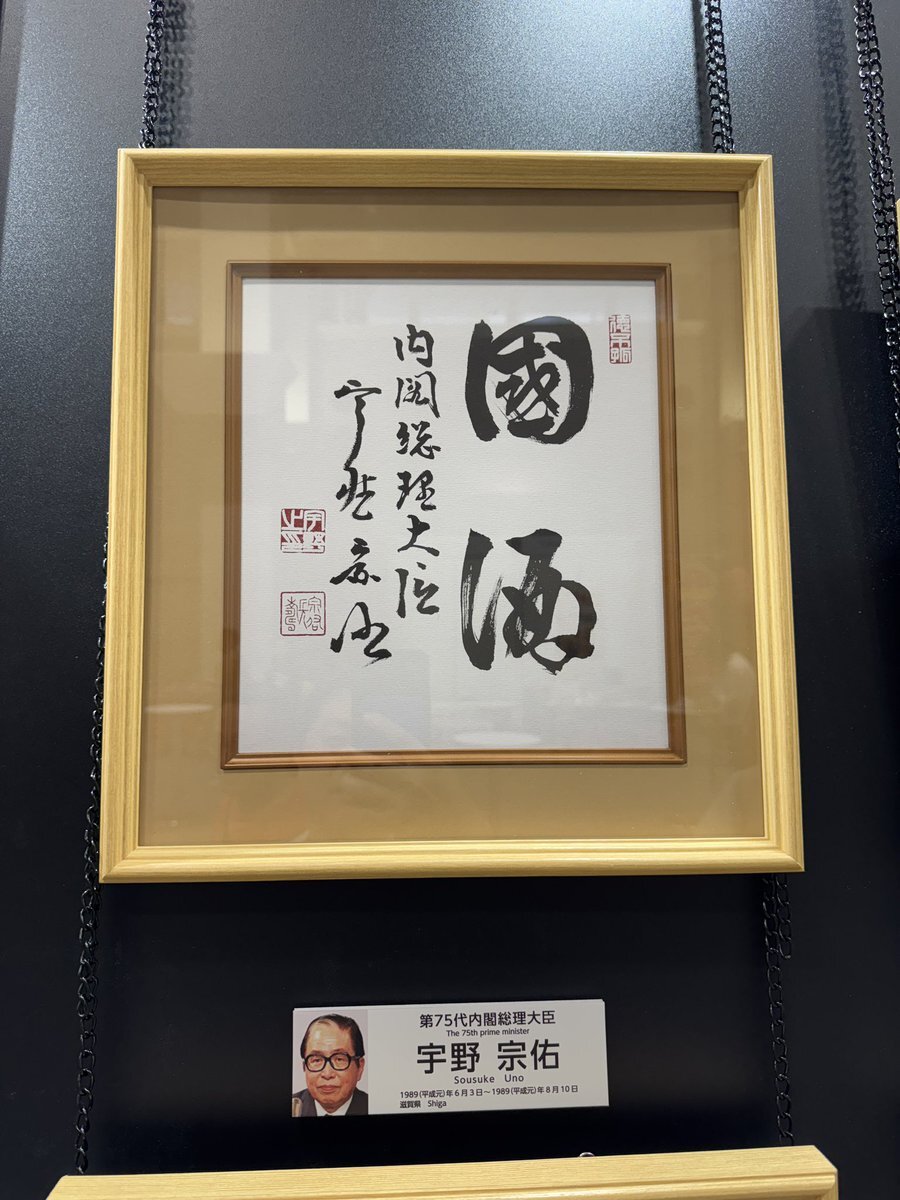 國酒
内閣総理大臣
宇野宗佑
第75代内閣総理大臣
The 75th prime minister
宇野 宗佑
Sousuke Uno
1989(平成元)年6月3日~1989(平成元)年8月10日
滋賀県 Shiga